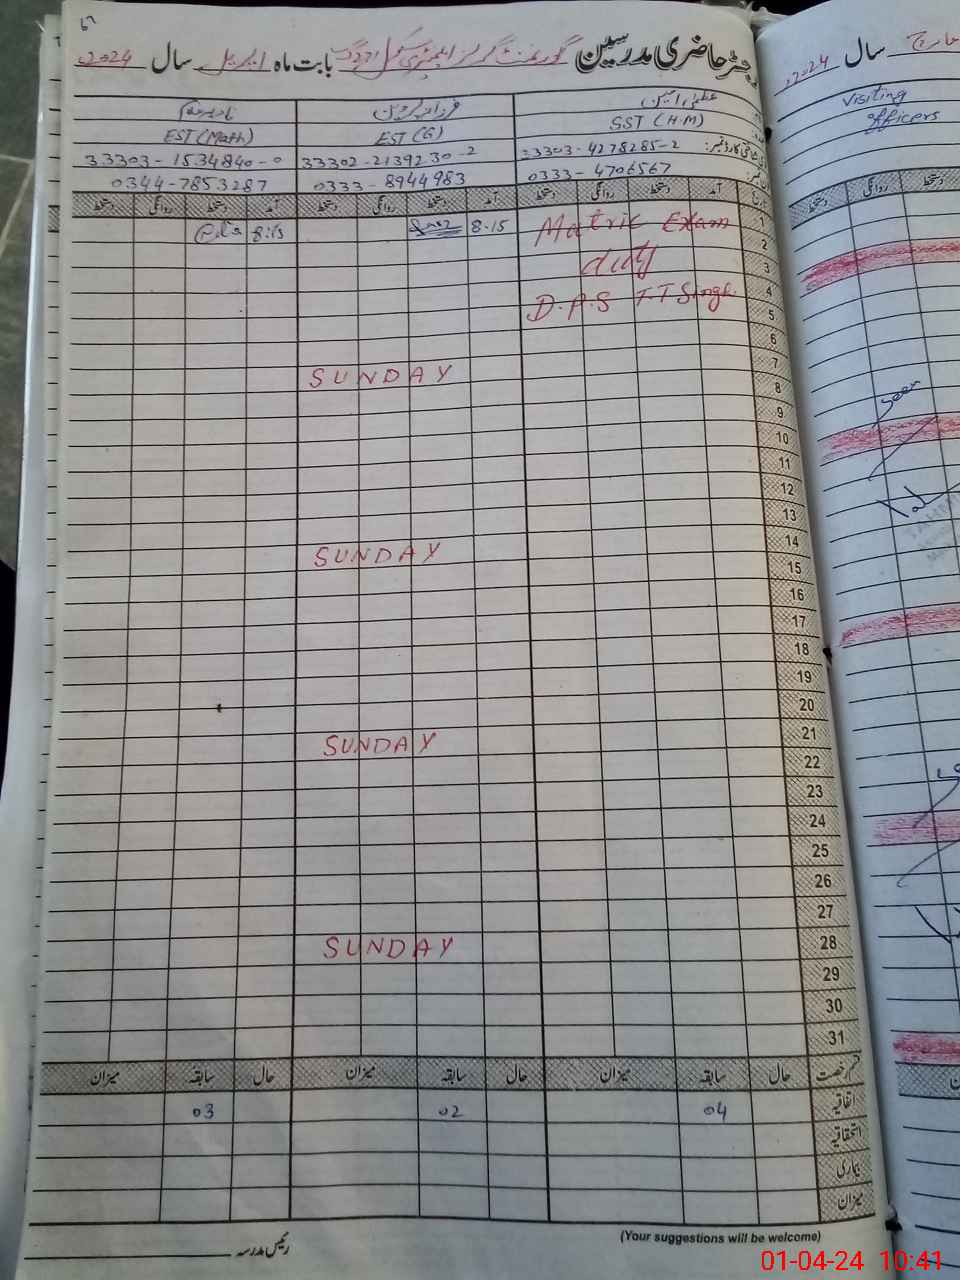 رجسٹر حاضری مدرسین گورنمنٹ گرلز ایلیمنٹری سکول بابت ماہ اپریل سال 2024
EST (Math) EST (G) SST (H.M)
33303-1534840-0 33302-2139230-2 33303-4278285-2
0344-7853287 0333-8944983 0333-4706567
دستخط روانگی دستخط آمد دستخط روانگی دستخط آمد دستخط روانگی دستخط آمد
1
8:15 8.15 Matric Exam
2
duty
3
4
D.P.S T.T Singh
5
6
7
SUNDAY
8
9
10
11
12
13
14
SUNDAY
15
16
17
18
19
20
21
SUNDAY
22
23
24
25
26
27
28
SUNDAY
29
30
31
میزان سابقہ حال میزان سابقہ حال میزان سابقہ حال قسم رخصت
03 02 04 اتفاقیہ
استحقاقیہ
بیماری
میزان
رئیس مدرسہ
(Your suggestions will be welcome)
مارچ سال 2024
Visiting
officers
دستخط روانگی دستخط
Seen
01-04-24 10:41